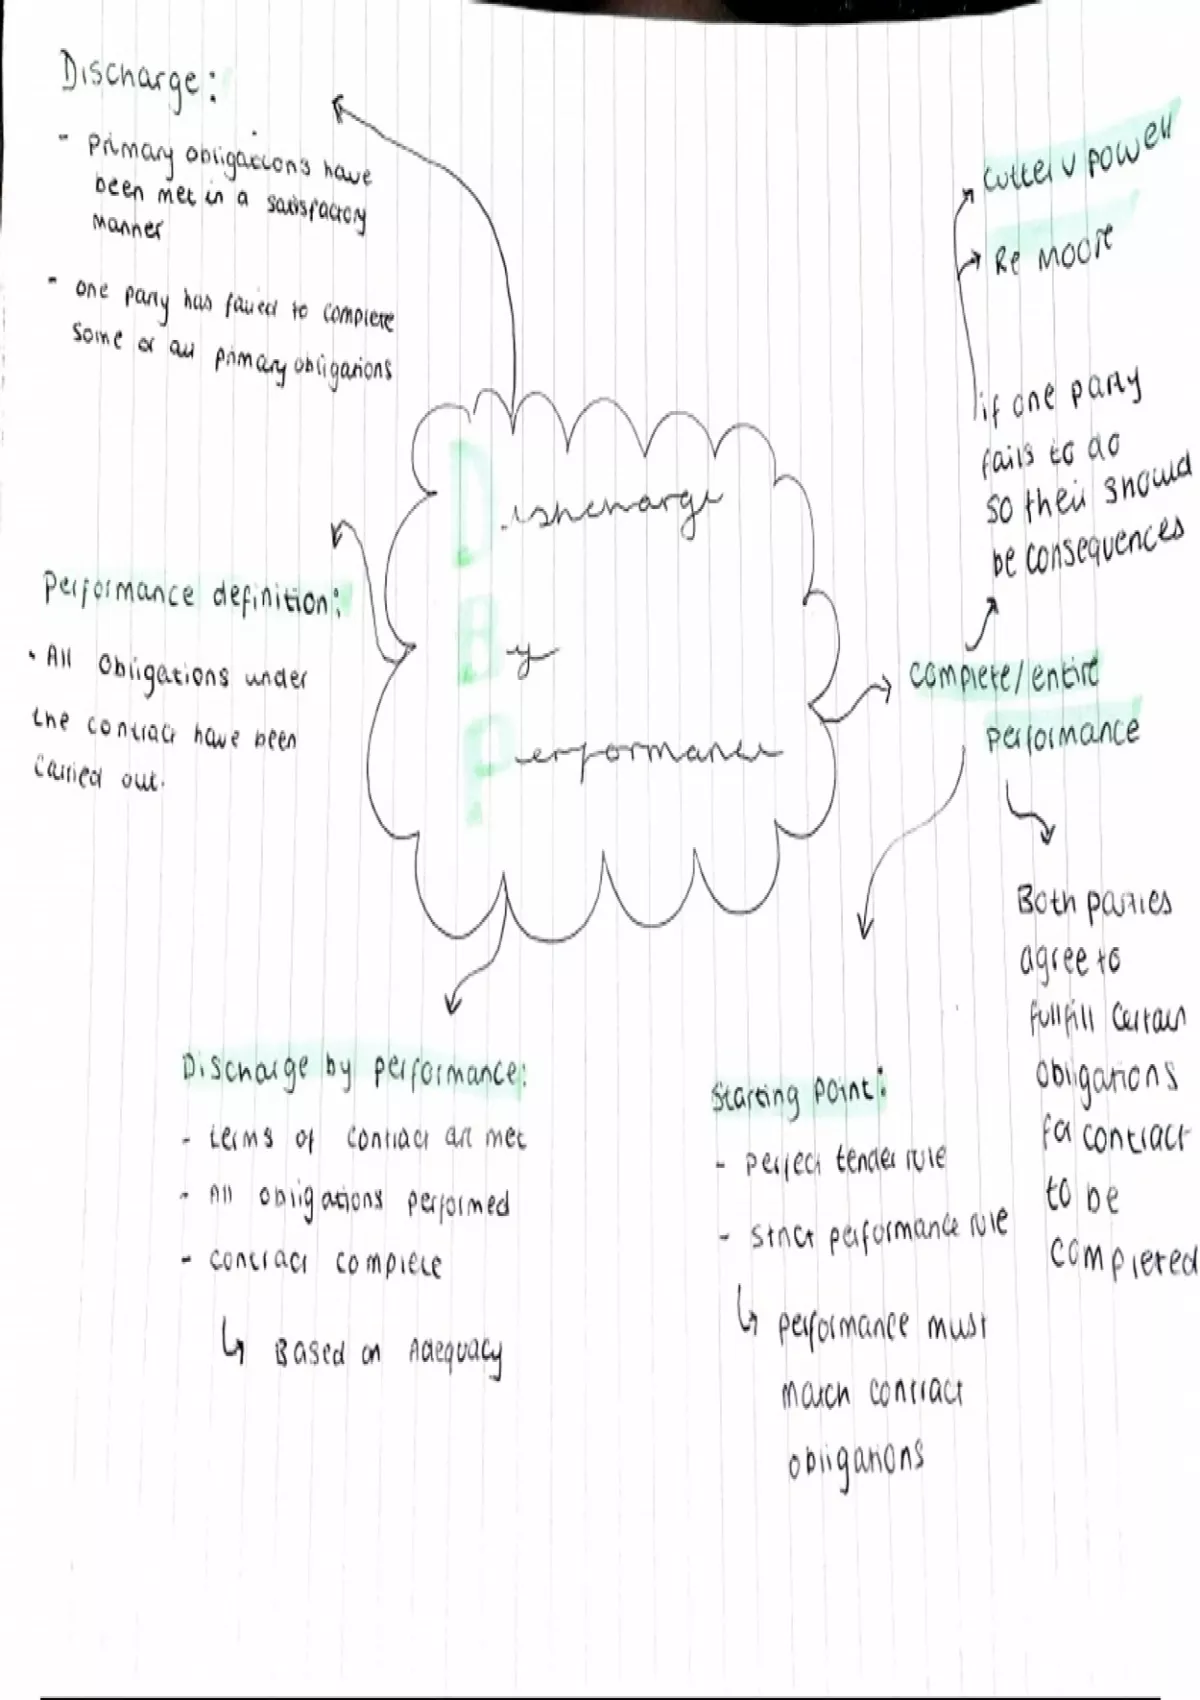 Discharge:
- Primary obligations have
been met in a satisfactory
manner
- one party has failed to complete
some or all primary obligations
Cutter v powell
Re Moore
if one party
fails to do
so their should
be consequences
Dishcharge
By
Performance
Performance definition:
• All obligations under
the contract have been
carried out.
complete/entire
performance
Both parties
agree to
fullfill certain
obligations
for contract
to be
completed
Discharge by performance:
- terms of contract are met
- All obligations performed
- contract complete
↳ Based on Adequacy
Starting point:
- perfect tender rule
- strict performance rule
↳ performance must
match contract
obligations